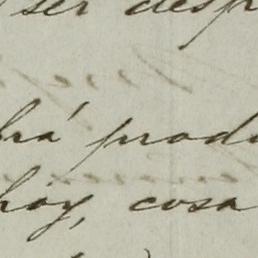 ser desp
brá prod
hoy, cosa